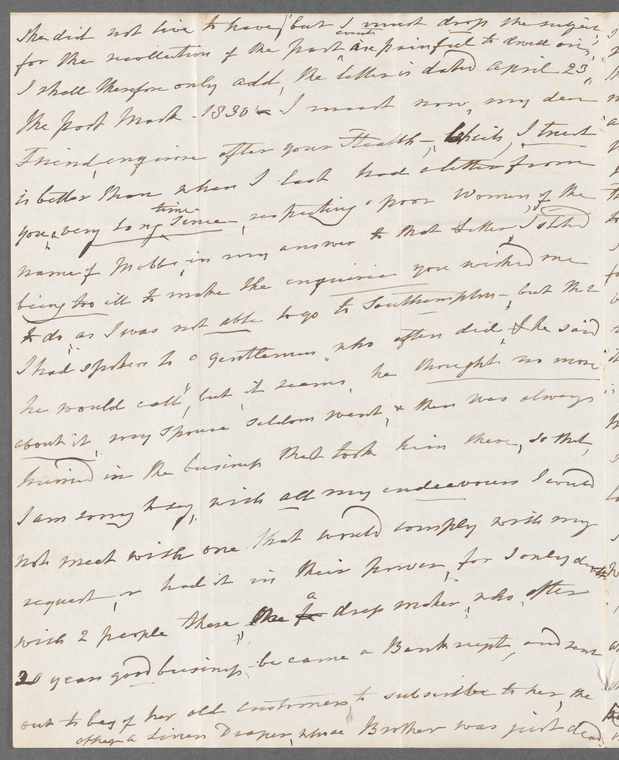 she did not live to have, but I must drop the subject,
for the recollection of the past events are painful to dwell on,
I shall therefore only add, the letter is dated April 23,
the post Mark - 1830 - I must now, my dear
Friend, enquire after your Health -, which, I trust
is better than when I last had a letter from
you, a very long time since, respecting a poor Women, of the
name of Mobbs, in my answer to that Letter, I stated
being too ill to make the enquiries you wished me
to do, as I was not able to go to Southampton -, but that
I had spoken to a gentleman, who often did & he said
he would call, but, it seems, he thought no more
about it, my Spouse seldom went, & then was always
hurried in the business that took him there, so that,
I am sorry to say, with all my endeavours I could
not meet with one that would comply with my
request, or had it in their power, for I only
with 2 people there, One a dress maker, who, after
20 years good business - became a Bankrupt, and sent
out to beg of her old customers to subscribe to her, the
other a Linen Draper, whose Brother was just dead